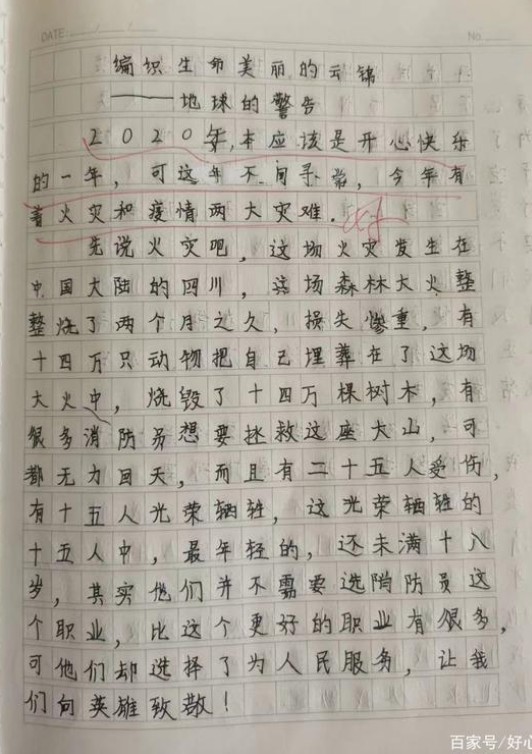 DATE
No
编织生命美丽的云锦
——地球的警告
2020年,本应该是开心快乐
的一年,可这年不同寻常,今年有
着火灾和疫情两大灾难.
先说火灾吧,这场火灾发生在
中国大陆的四川,这场森林大火整
整烧了两个月之久,损失惨重,有
十四万只动物把自己埋葬在了这场
大火中,烧毁了十四万棵树木,有
很多消防员想要拯救这座大山,可
都无力回天,而且有二十五人受伤,
有十五人光荣牺牲,这光荣牺牲的
十五人中,最年轻的,还未满十八
岁,其实他们并不需要选消防员这
个职业,比这个更好的职业有很多,
可他们却选择了为人民服务,让我
们向英雄致敬!
百家号/好心